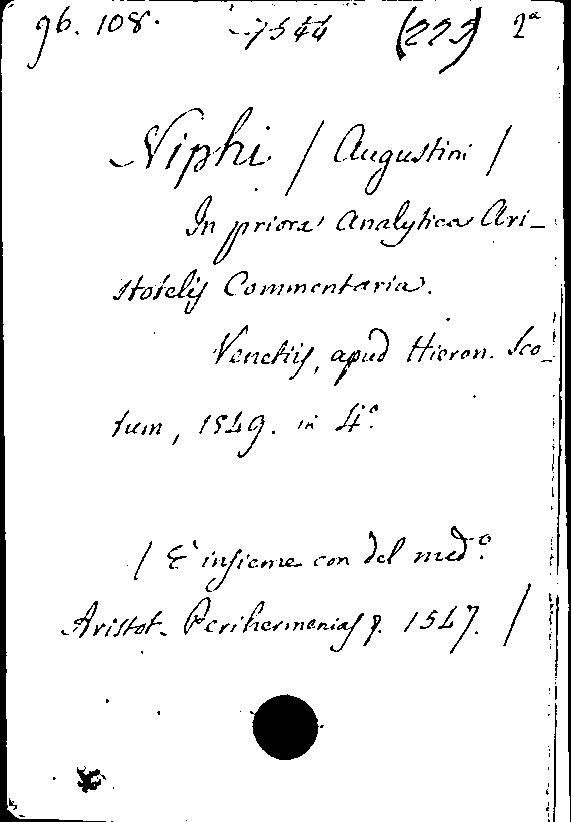 96. 108. 7544 (223) 2ª
Niphi / Augustini /
In priora Analytica Ari_
stotelis Commentaria.
Venetiis, apud Hieron. Sco_
tum, 1549. in 4º
/ E' insieme con del med.º
Aristot. Perihermenias 1547. /